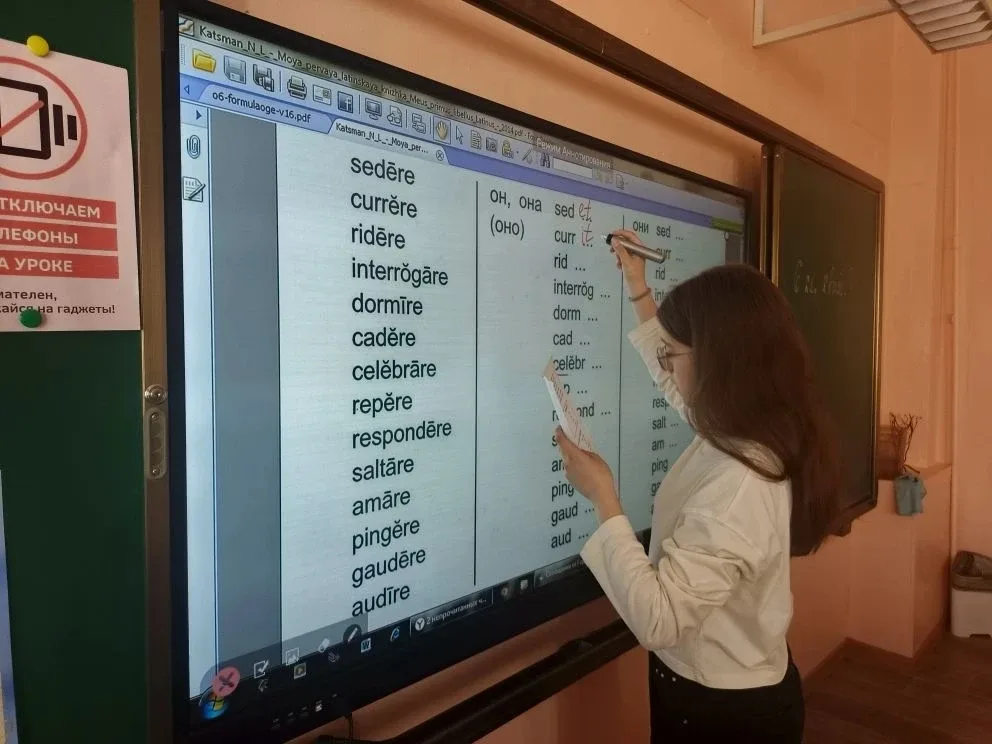 ТКЛЮЧАЕМ
ЛЕФОНЫ
А УРОКЕ
мателен,
кайся на гаджеты!
Katsman_N_L_-_Moya_pervaya_latinskaya_knizhka_Meus_primus_libellus_Latinus_-_2014.pdf - Fo
Режим Аннотирования
o6-formulaoge-v16.pdf
Katsman_N_L_-_Moya_per...
sedēre
currĕre
ridēre
interrŏgāre
dormīre
cadĕre
celĕbrāre
repĕre
respondēre
saltāre
amāre
pingĕre
gaudēre
audīre
он, она sed et
(оно) curr it ...
rid ...
interrŏg ...
dorm ...
cad ...
celĕbr ...
p ...
r ond ...
s
am
ping
gaud ...
aud ...
они sed ...
curr
rid
inte
resp
salt ...
am ...
ping
2 непрочитанных ч...